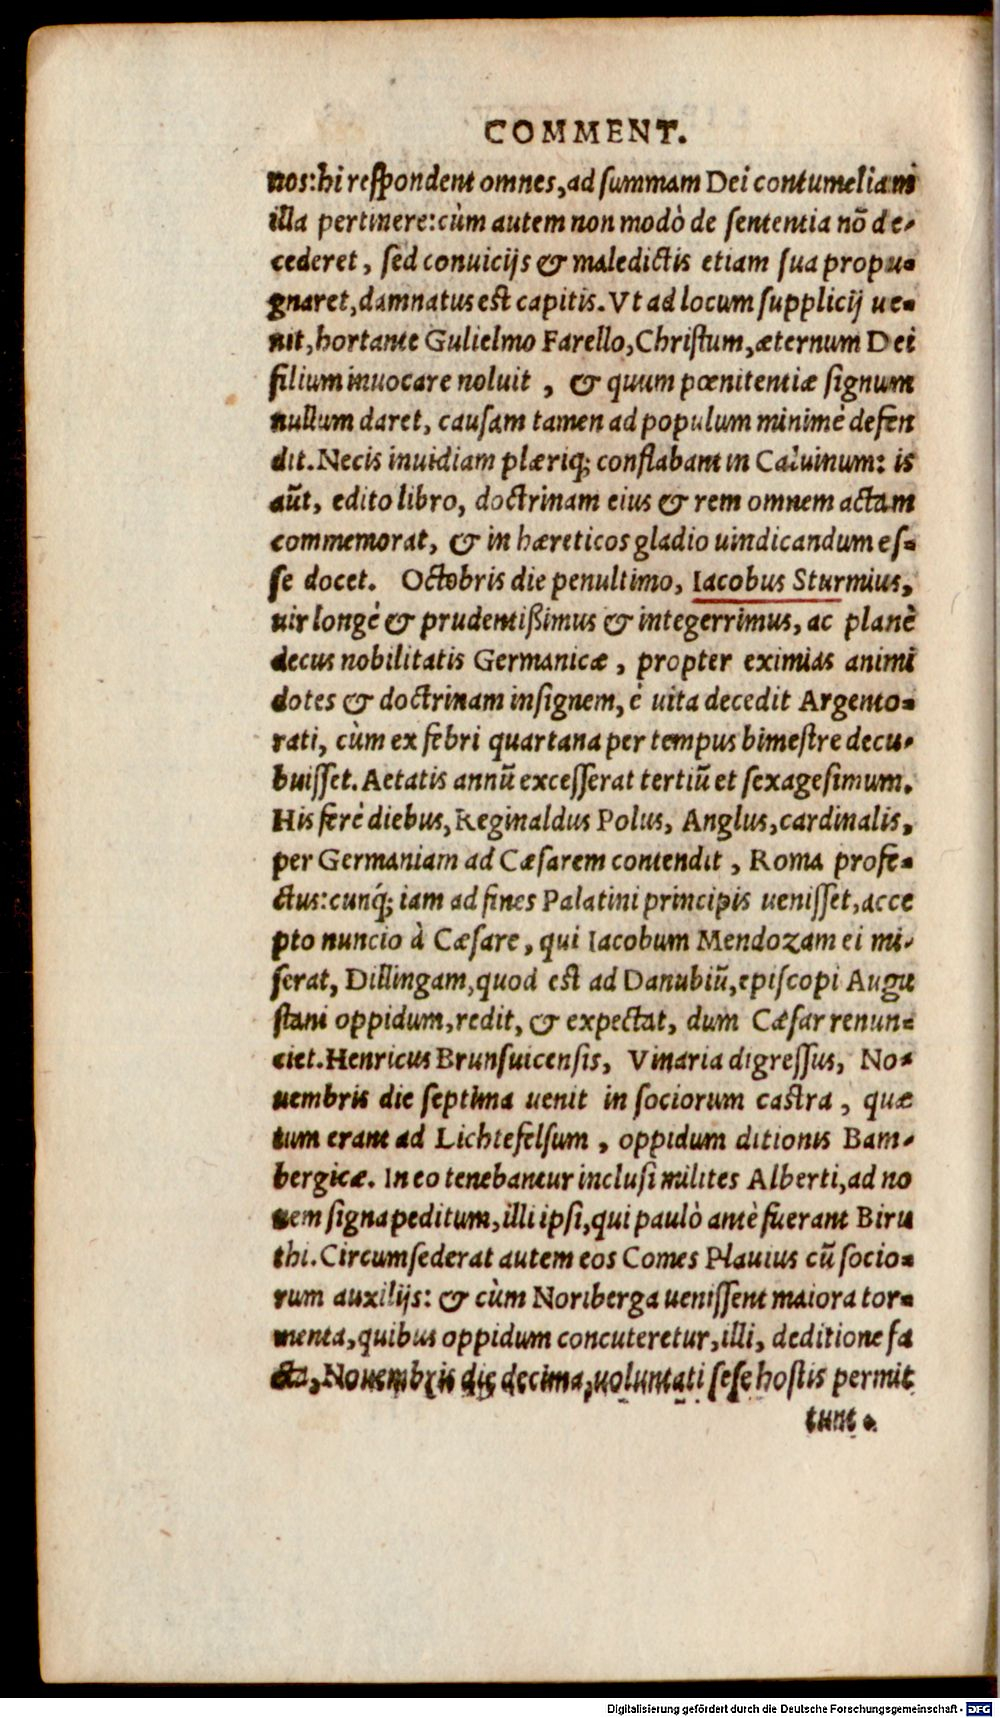 COMMENT.
nos: hi respondent omnes, ad summam Dei contumeliam
illa pertinere: cùm autem non modò de sententia nõ de-
cederet, sed conuicijs & maledictis etiam sua propu-
gnaret, damnatus est capitis. Vt ad locum supplicij ue-
nit, hortante Gulielmo Farello, Christum, æternum Dei
filium inuocare noluit, & quum pœnitentiæ signum
nullum daret, causam tamen ad populum minimè defen
dit. Necis inuidiam plæriq; conflabant in Caluinum: is
aũt, edito libro, doctrinam eius & rem omnem actam
commemorat, & in hæreticos gladio uindicandum es-
se docet. Octobris die penultimo, Iacobus Sturmius,
uir longè & prudentißimus & integerrimus, ac planè
decus nobilitatis Germanicæ, propter eximias animi
dotes & doctrinam insignem, è uita decedit Argento-
rati, cùm ex febri quartana per tempus bimestre decu-
buisset. Aetatis annũ excesserat tertiũ et sexagesimum.
His ferè diebus, Reginaldus Polus, Anglus, cardinalis,
per Germaniam ad Cæsarem contendit, Roma profe-
ctus: cunq́; iam ad fines Palatini principis uenisset, acce
pto nuncio à Cæsare, qui Iacobum Mendozam ei mi-
serat, Dillingam, quod est ad Danubiũ, episcopi Augu
stani oppidum, redit, & expectat, dum Cæsar renun-
ciet. Henricus Brunsuicensis, Vinaria digressus, No-
uembris die septima uenit in sociorum castra, quæ
tum erant ad Lichtefelsum, oppidum ditionis Bam-
bergicæ. In eo tenebantur inclusi milites Alberti, ad no
uem signa peditum, illi ipsi, qui paulò antè fuerant Biru
thi. Circumsederat autem eos Comes Plauius cũ socio-
rum auxilijs: & cùm Noriberga uenissent maiora tor-
menta, quibus oppidum concuteretur, illi, deditione fa
cta, Nouembris die decima, uoluntati sese hostis permit
tunt.
Digitalisierung gefördert durch die Deutsche Forschungsgemeinschaft - DFG